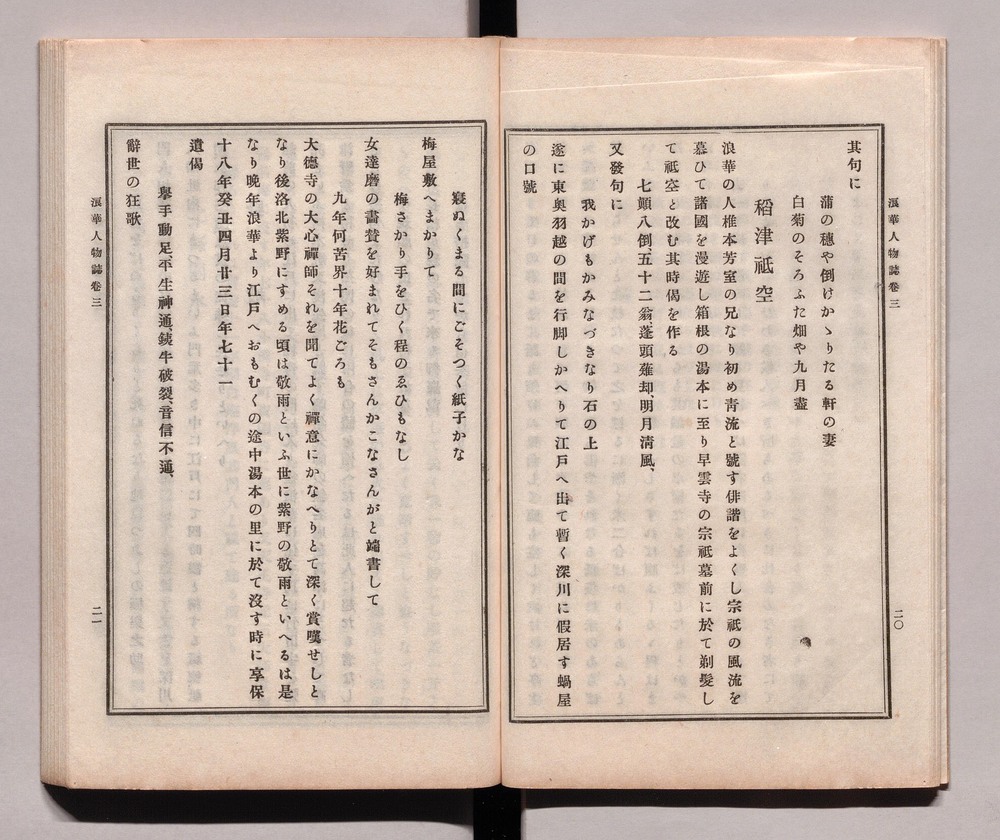 浪華人物誌卷三
二〇
其句に
蒲の穗や倒けかゝりたる軒の妻
白菊のそろふた畑や九月盡
稻津祗空
浪華の人椎本芳室の兄なり初め靑流と號す俳諧をよくし宗祗の風流を
慕ひて諸國を漫遊し箱根の湯本に至り早雲寺の宗祗墓前に於て剃髮し
て祗空と改む其時偈を作る
七顚八倒、五十二翁、蓬頭薙却、明月淸風、
又發句に
我かげもかみなづきなり石の上
遂に東奥羽越の間を行脚しかへりて江戸へ出て暫く深川に假居す蝸屋
の口號
寢ぬくまる間にごそつく紙子かな
梅屋敷へまかりて
梅さかり手をひく程のゑひもなし
女達磨の畵賛を好まれてそもさんかこなさんがと端書して
九年何苦界十年花ごろも
大德寺の大心禪師それを聞てよく禪意にかなへりとて深く賞嘆せしと
なり後洛北紫野にすめる頃は敬雨といふ世に紫野の敬雨といへるは是
なり晩年浪華より江戸へおもむくの途中湯本の里に於て沒す時に享保
十八年癸丑四月廿三日年七十一
遺偈
擧手動足、平生神通、鐵牛破裂、音信不通、
辭世の狂歌
浪華人物誌卷三
二一